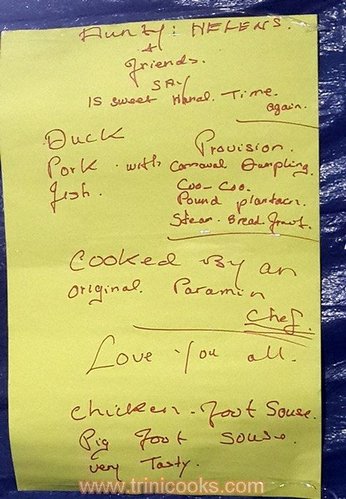 Aunty: HELENS.
&
friends.
SAY
Is Sweet Hand. Time.
again.
Duck Provision.
Pork. with Cassava Dumpling.
fish. Coo-Coo.
Pound plantain.
Steam. Bread fruit.
Cooked By an
Original Paramin
Chef.
Love You all.
Chicken. foot Souse.
Pig foot Souse.
very Tasty.
www.trinicooks.com